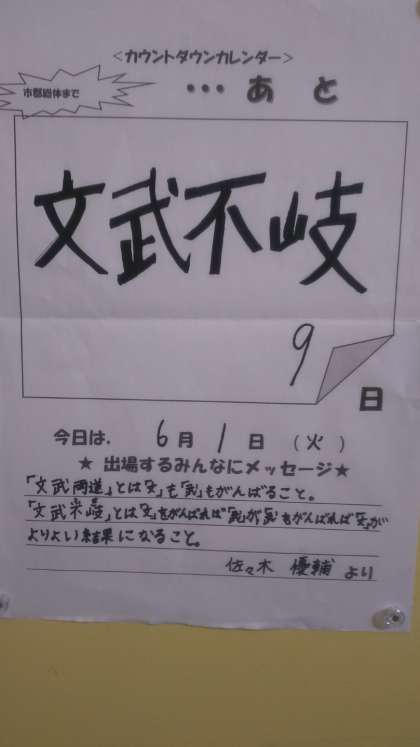 <カウントダウンカレンダー>
市郡総体まで
・・・あと
文武不岐
9
日
今日は、6月1日(火)
★出場するみんなにメッセージ★
「文武両道」とは「文」も「武」もがんばること。
とは「文」をがんばれば「武」が「武」もがんばれば「文」が
よりよい結果になること。
佐々木 優輔 より